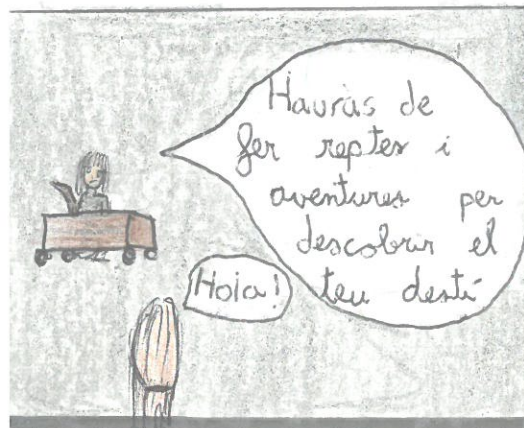 Hauràs de
fer reptes i
aventures per
descobrir el
teu destí
Hola!